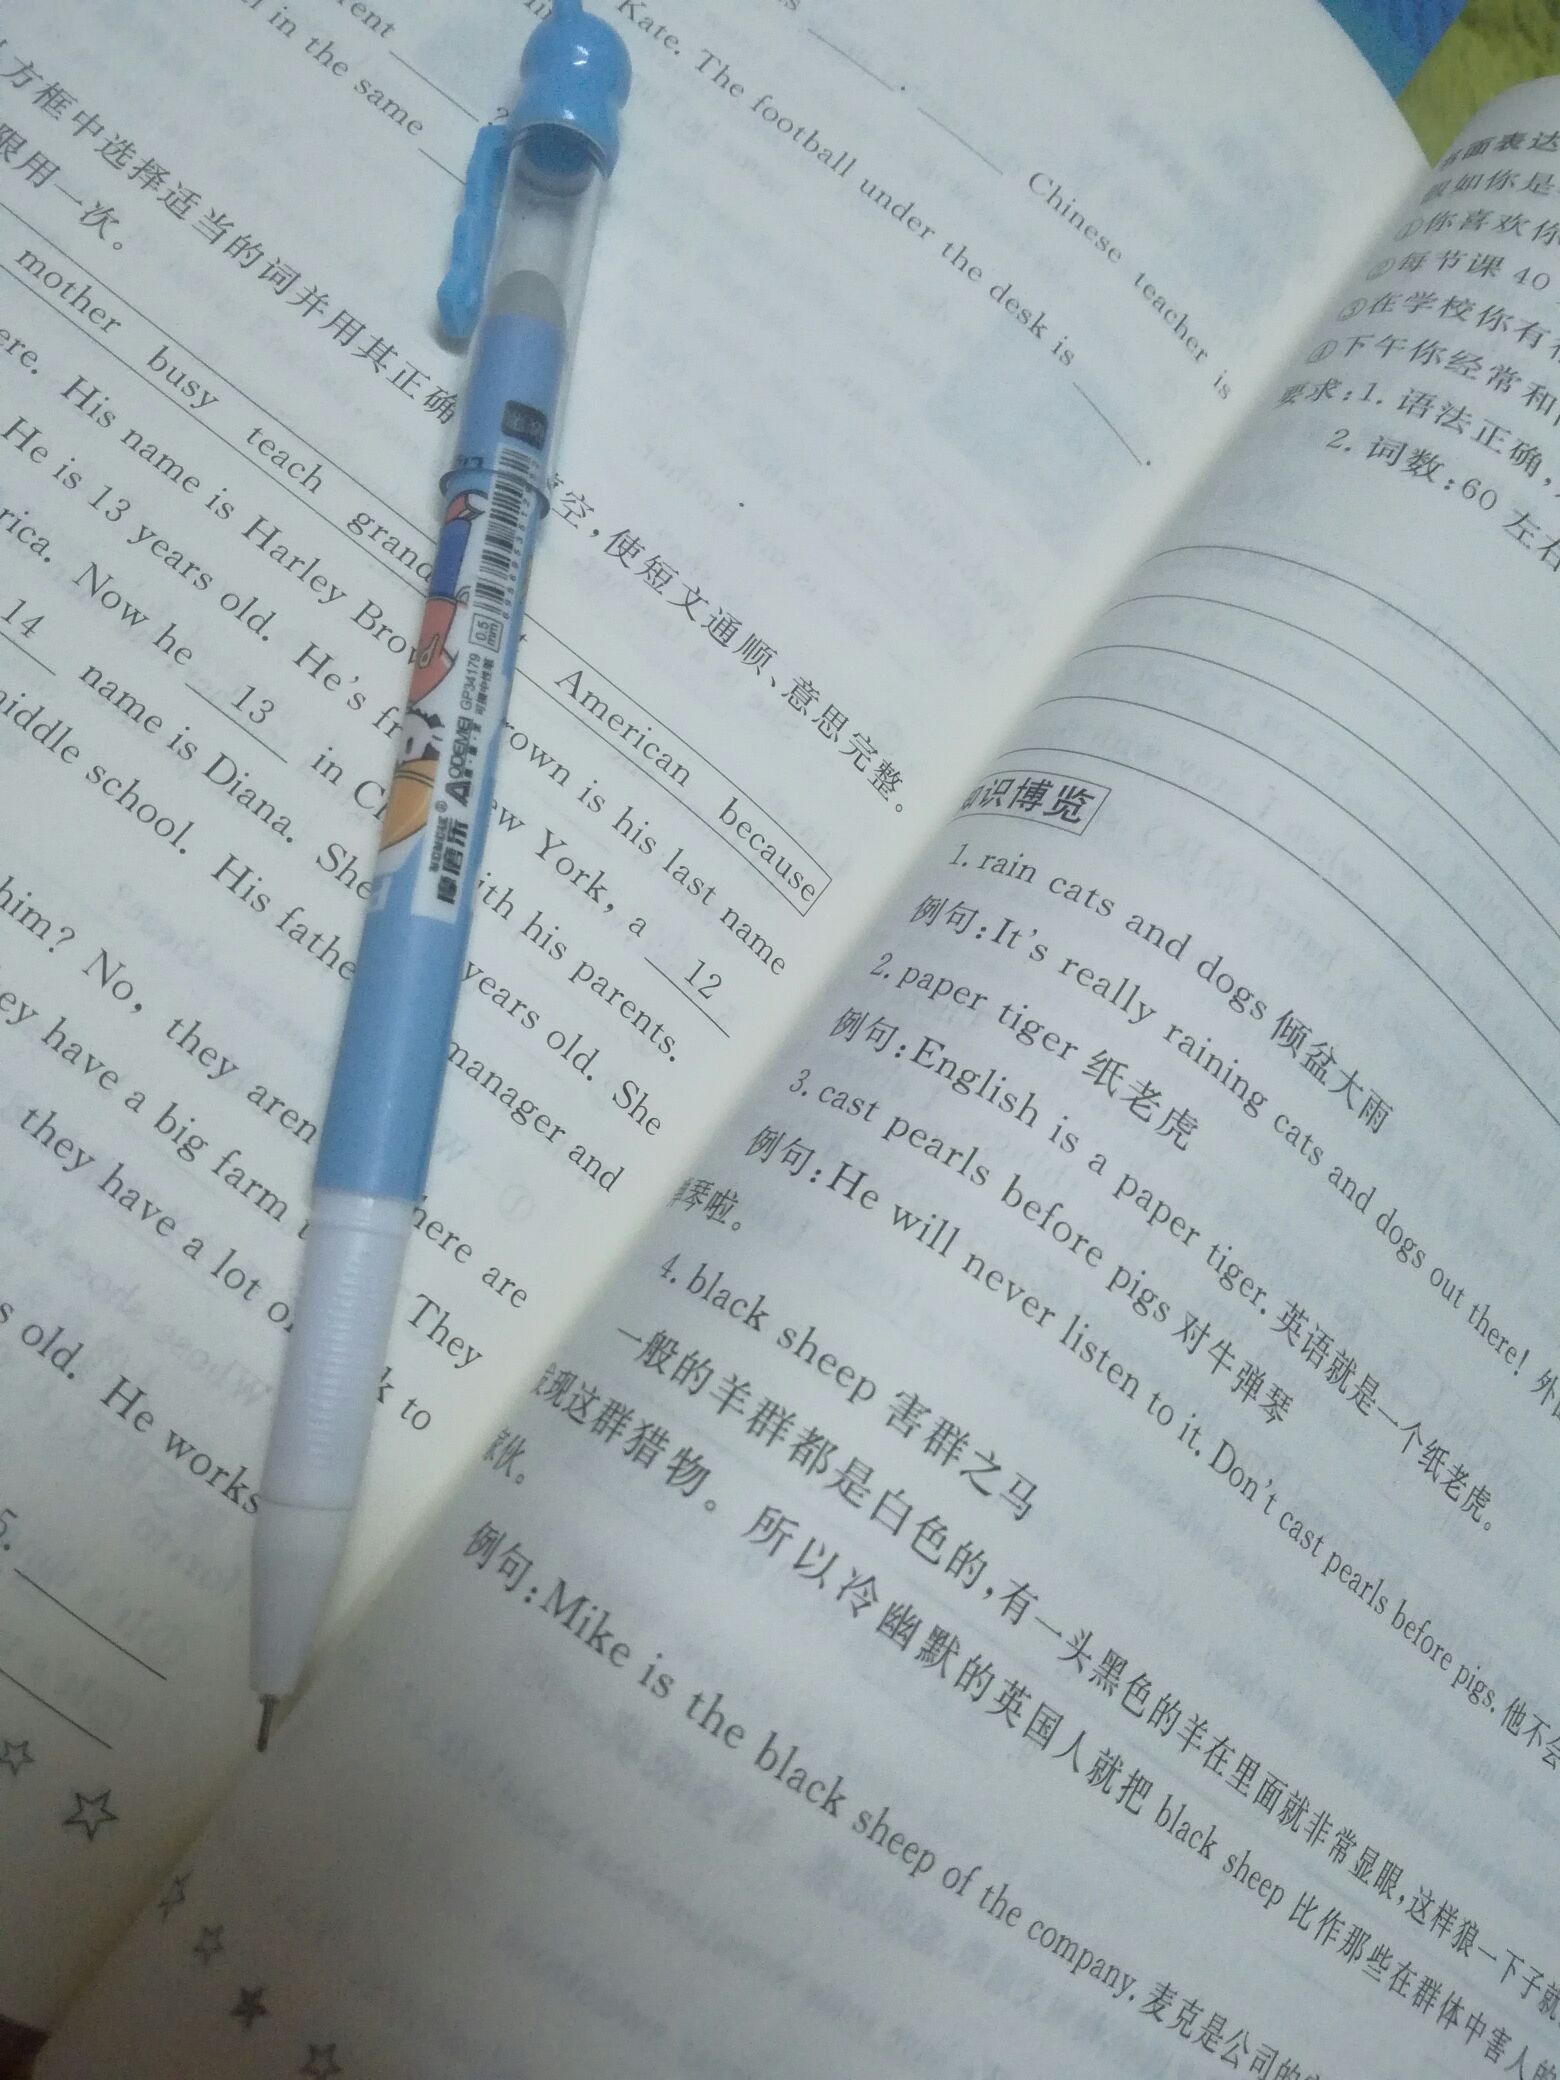 rent ______ ?
in the same ______
Kate. The football under the desk is ______.
______. ______ Chinese teacher is
方框中选择适当的词并用其正确
空,使短文通顺、意思完整。
限用一次。
mother busy teach grand American because
ere. His name is Harley Brow rown is his last name
He is 13 years old. He's fr ew York, a 12
rica. Now he 13 in C ith his parents.
14 name is Diana. She years old. She
middle school. His fathe manager and
him? No, they aren here are
ey have a big farm They
they have a lot o k to
s old. He works
5. ______
0.5
mm
GP34179
AODEMEI
书面表达
假如你是
①你喜欢你
②每节课 40
③在学校你有
④下午你经常和
要求:1. 语法正确,
2. 词数:60 左右
知识博览
1. rain cats and dogs 倾盆大雨
例句:It's really raining cats and dogs out there! 外
2. paper tiger 纸老虎
例句:English is a paper tiger. 英语就是一个纸老虎。
3. cast pearls before pigs 对牛弹琴
例句:He will never listen to it. Don't cast pearls before pigs. 他不会
弹琴啦。
4. black sheep 害群之马
一般的羊群都是白色的,有一头黑色的羊在里面就非常显眼,这样狼一下子就
发现这群猎物。所以冷幽默的英国人就把 black sheep 比作那些在群体中害人的
家伙。
例句:Mike is the black sheep of the company. 麦克是公司的